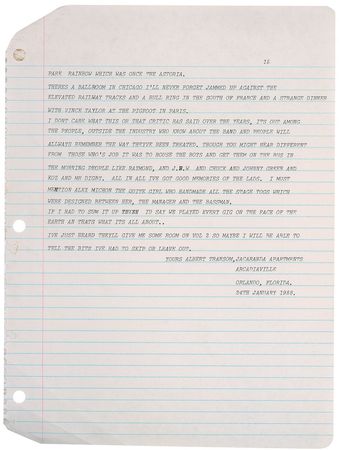 16
PARK RAINBOW WHICH WAS ONCE THE ASTORIA.
THERES A BALLROOM IN CHICAGO I'LL NEVER FORGET JAMMED UP AGAINST THE
ELEVATED RAILWAY TRACKS AND A BULL RING IN THE SOUTH OF FRANCE AND A STRANGE DINNER
WITH VINCE TAYLOR AT THE PIGFOOT IN PARIS.
I DONT CARE WHAT THIS OR THAT CRITIC HAS SAID OVER THE YEARS, ITS OUT AMONG
THE PEOPLE, OUTSIDE THE INDUSTRY WHO KNOW ABOUT THE BAND AND PEOPLE WILL
ALLWAYS REMEMBER THE WAY THEYVE BEEN TREATED. THOUGH YOU MIGHT HEAR DIFFERENT
FROM THOSE WHO'S JOB IT WAS TO ROUSE THE BOYS AND GET THEM ON THE BUS IN
THE MORNING PEOPLE LIKE RAYMOND, AND J,B,W AND CHUCK AND JOHNNY GREEN AND
KOZ AND MH DIGNY. ALL IN ALL IVE GOT GOOD MEMORIES OF THE LADS. I MUST
MENTION ALEX MICHON THE QUITE GIRL WHO HANDMADE ALL THE STAGE TOGS WHICH
WERE DESIGNED BETWEEN HER, THE MANAGER AND THE BASSMAN.
IF I HAD TO SUM IT UP ID SAY WE PLAYED EVERY GIG ON THE FACE OF THE
EARTH AN THATS WHAT ITS ALL ABOUT..
IVE JUST HEARD THEYLL GIVE ME SOME ROOM ON VOL 2 SO MAYBE I WILL BE ABLE TO
TELL THE BITS IVE HAD TO SKIP OR LEAVE OUT.
YOURS ALBERT TRANSOM, JACARANDA APARTMENTS
ARCADIAVILLE
ORLANDO, FLORIDA.
24TH JANUARY 1988.